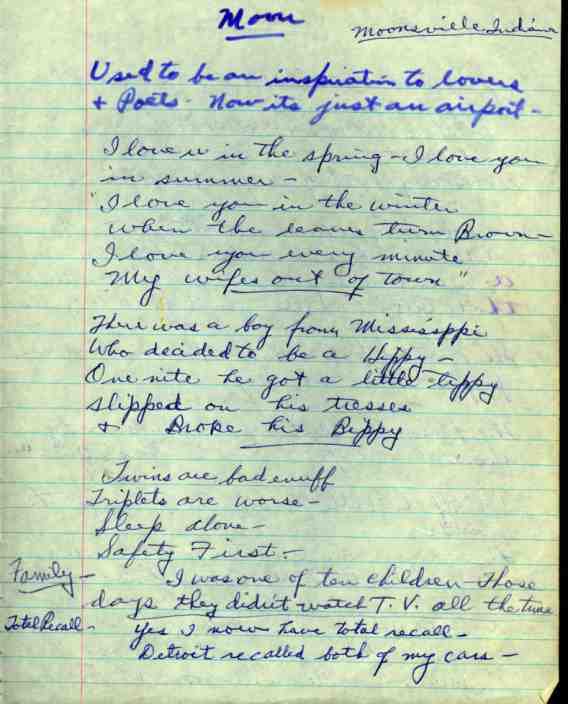 Moon
Moonsville Indiana
Used to be an inspiration to lovers
+ Poets - Now its just an airport -
I love u in the spring - I love you
in summer -
"I love you in the winter
when the leaves turn Brown -
I love you every minute
"My wifes out of town"
There was a boy from Mississippi
Who decided to be a Hippy -
One nite he got a little tippy
slipped on his tresses
+ Broke his Bippy
Twins are bad enuff
Triplets are worse -
Sleep alone -
Safety First -
Family - I was one of ten children - Those
days they didn't watch T.V. all the time
Total Recall - Yes I now have total recall -
Detroit recalled both of my cars -